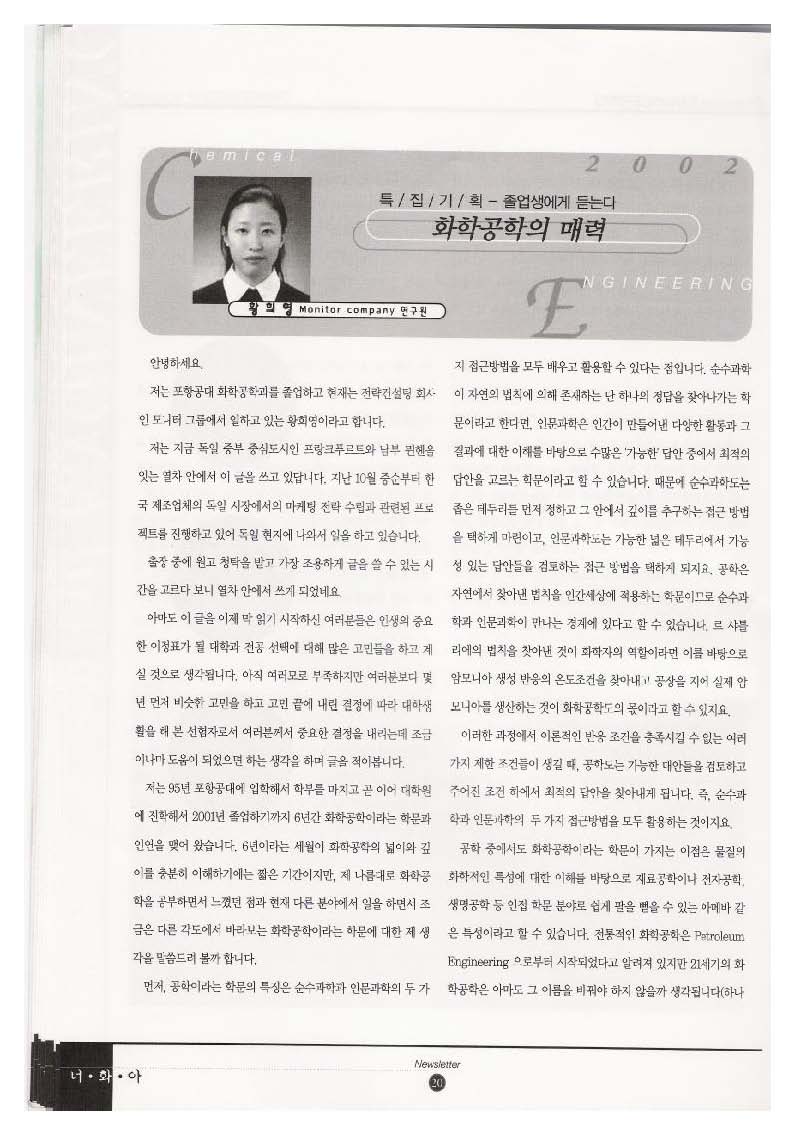 Chemical
2002
특 / 집 / 기 / 획 - 졸업생에게 듣는다
화학공학의 매력
ENGINEERING
황 희 영 Monitor company 연구원
안녕하세요.
저는 포항공대 화학공학과를 졸업하고 현재는 전략컨설팅 회사
인 모니터 그룹에서 일하고 있는 황희영이라고 합니다.
저는 지금 독일 중부 중심도시인 프랑크푸르트와 남부 뮌헨을
잇는 열차 안에서 이 글을 쓰고 있답니다. 지난 10월 중순부터 한
국 제조업체의 독일 시장에서의 마케팅 전략 수립과 관련된 프로
젝트를 진행하고 있어 독일 현지에 나와서 일을 하고 있습니다.
출장 중에 원고 청탁을 받고 가장 조용하게 글을 쓸 수 있는 시
간을 고르다 보니 열차 안에서 쓰게 되었네요.
아마도 이 글을 이제 막 읽기 시작하신 여러분들은 인생의 중요
한 이정표가 될 대학과 전공 선택에 대해 많은 고민들을 하고 계
실 것으로 생각됩니다. 아직 여러모로 부족하지만 여러분보다 몇
년 먼저 비슷한 고민을 하고 고민 끝에 내린 결정에 따라 대학생
활을 해 본 선험자로서 여러분께서 중요한 결정을 내리는데 조금
이나마 도움이 되었으면 하는 생각을 하며 글을 적어봅니다.
저는 95년 포항공대에 입학해서 학부를 마치고 곧 이어 대학원
에 진학해서 2001년 졸업하기까지 6년간 화학공학이라는 학문과
인연을 맺어 왔습니다. 6년이라는 세월이 화학공학의 넓이와 깊
이를 충분히 이해하기에는 짧은 기간이지만, 제 나름대로 화학공
학을 공부하면서 느꼈던 점과 현재 다른 분야에서 일을 하면서 조
금은 다른 각도에서 바라보는 화학공학이라는 학문에 대한 제 생
각을 말씀드려 볼까 합니다.
먼저, 공학이라는 학문의 특징은 순수과학과 인문과학의 두 가
지 접근방법을 모두 배우고 활용할 수 있다는 점입니다. 순수과학
이 자연의 법칙에 의해 존재하는 단 하나의 정답을 찾아나가는 학
문이라고 한다면, 인문과학은 인간이 만들어낸 다양한 활동과 그
결과에 대한 이해를 바탕으로 수많은 '가능한' 답안 중에서 최적의
답안을 고르는 학문이라고 할 수 있습니다. 때문에 순수과학도는
좁은 테두리를 먼저 정하고 그 안에서 깊이를 추구하는 접근 방법
을 택하게 마련이고, 인문과학도는 가능한 넓은 테두리에서 가능
성 있는 답안들을 검토하는 접근 방법을 택하게 되지요. 공학은
자연에서 찾아낸 법칙을 인간세상에 적용하는 학문이므로 순수과
학과 인문과학이 만나는 경계에 있다고 할 수 있습니다. 르 샤틀
리에의 법칙을 찾아낸 것이 화학자의 역할이라면 이를 바탕으로
암모니아 생성 반응의 온도조건을 찾아내고 공장을 지어 실제 암
모니아를 생산하는 것이 화학공학도의 몫이라고 할 수 있지요.
이러한 과정에서 이론적인 반응 조건을 충족시킬 수 없는 여러
가지 제한 조건들이 생길 때, 공학도는 가능한 대안들을 검토하고
주어진 조건 하에서 최적의 답안을 찾아내게 됩니다. 즉, 순수과
학과 인문과학의 두 가지 접근방법을 모두 활용하는 것이지요.
공학 중에서도 화학공학이라는 학문이 가지는 이점은 물질의
화학적인 특성에 대한 이해를 바탕으로 재료공학이나 전자공학,
생명공학 등 인접 학문 분야로 쉽게 팔을 뻗을 수 있는 아메바 같
은 특성이라고 할 수 있습니다. 전통적인 화학공학은 Petroleum
Engineering 으로부터 시작되었다고 알려져 있지만 21세기의 화
학공학은 아마도 그 이름을 바꿔야 하지 않을까 생각됩니다(하나
너 • 화 • 아
Newsletter
20